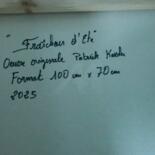 "Fraîcheur d'Eté"
Oeuvre originale Patrick
Format 100 cm x 70 cm
2025